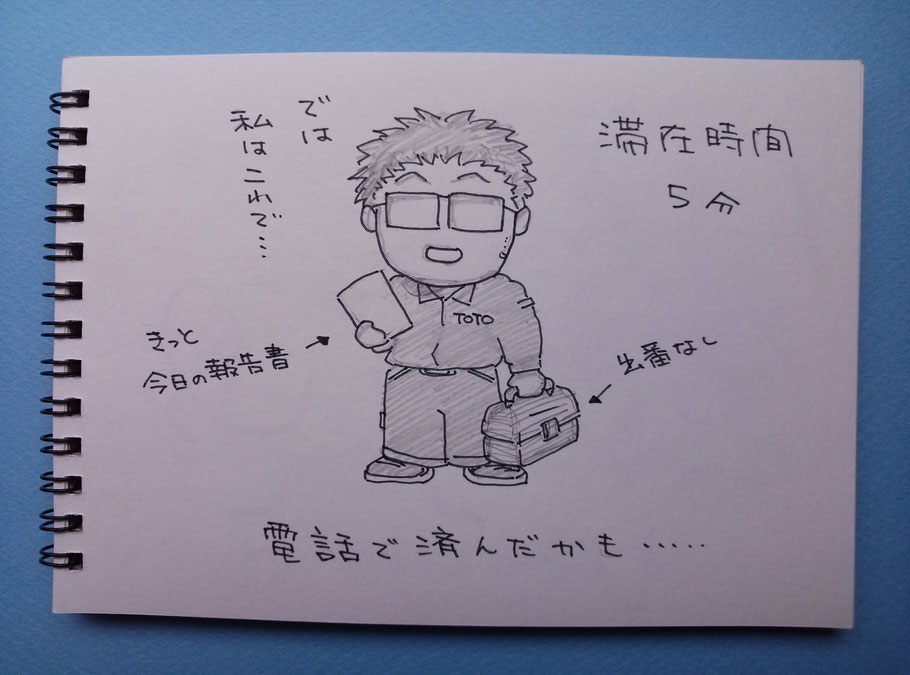 では
私はこれで…
滞在時間
5分
TOTO
きっと
今日の報告書
出番なし
電話で済んだかも・・・・・